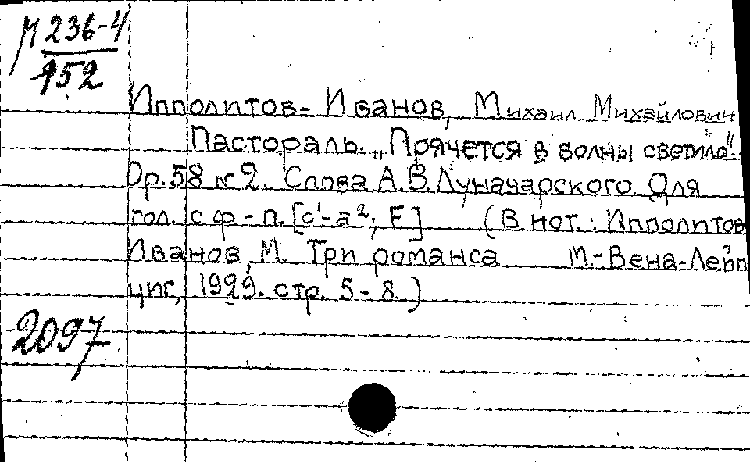 М 236-4
952
Ипполитов-Иванов, Михаил Михайлович
Пастораль. „Прячется в волны светило".
Op. 58 № 2. Слова А.В.Луначарского. Для
гол. с ф-п. [c¹-a²; F] (В нот.: Ипполитов
Иванов, М. Три романса М.-Вена-Лейп
циг, 1929. стр. 5-8.)
2097